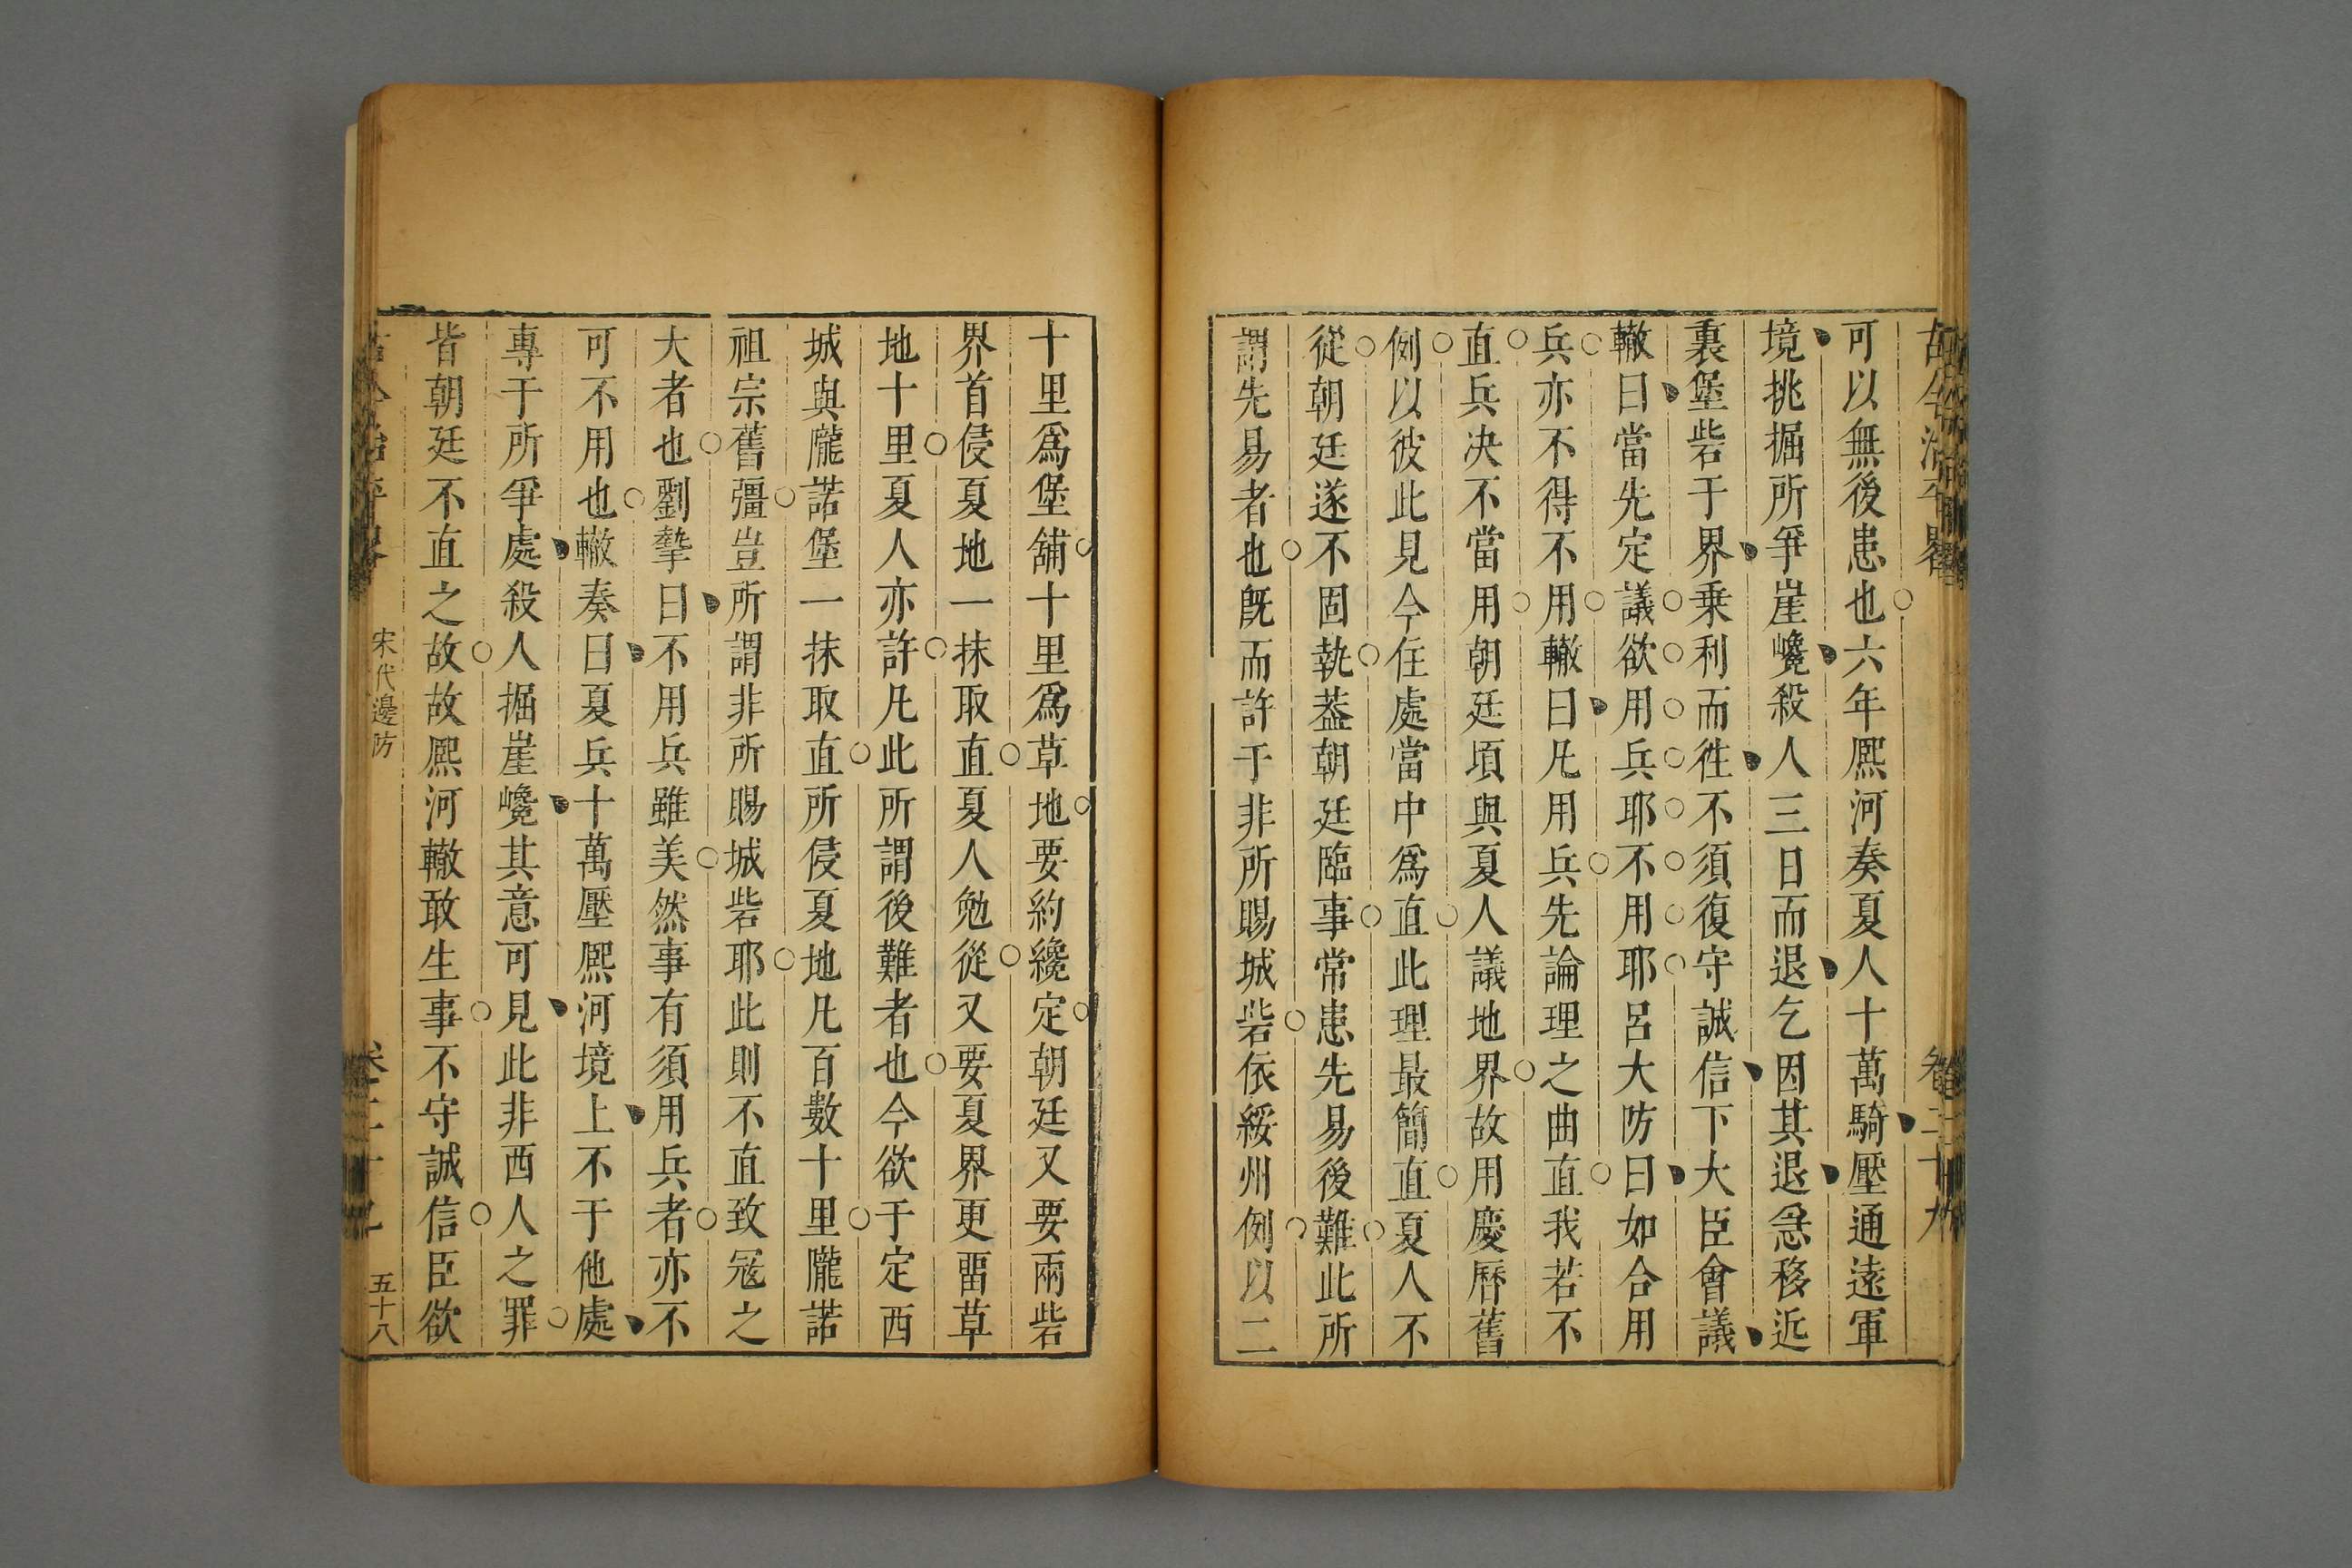 可以無後患也六年熈河奏夏人十萬騎壓通遠軍
境挑掘所爭崖巉殺人三日而退乞因其退急移近
裏堡砦于界乗利而徃不須復守誠信下大臣會議
轍曰當先定議欲用兵耶不用耶呂大防曰如合用
兵亦不得不用轍曰凡用兵先論理之曲直我若不
直兵决不當用朝廷頃與夏人議地界故用慶曆舊
例以彼此見今住處當中爲直此理最簡直夏人不
從朝廷遂不固執葢朝廷臨事常患先易後難此所
謂先易者也旣而許于非所賜城砦依綏州例以二
十里爲堡舖十里爲草地要約纔定朝廷又要兩砦
界首侵夏地一抹取直夏人勉從又要夏界更畱草
地十里夏人亦許凡此所謂後難者也今欲于定西
城與隴諾堡一抹取直所侵夏地凡百數十里隴諾
祖宗舊疆豈所謂非所賜城砦耶此則不直致冦之
大者也劉摯曰不用兵雖美然事有須用兵者亦不
可不用也轍奏曰夏兵十萬壓熈河境上不于他處
專于所爭處殺人掘崖巉其意可見此非西人之罪
皆朝廷不直之故故熈河輙敢生事不守誠信臣欲
宋代邊防
五十八